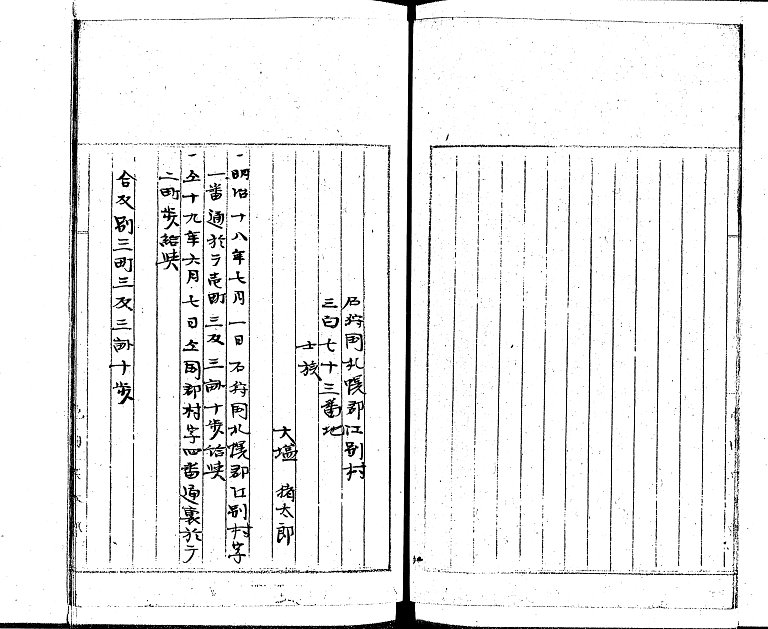 石狩国札幌郡江別村
三百七十三番地
士族
大塩 猪太郎
一明治十八年七月一日石狩国札幌郡江別村字
一番通於テ壱町三反三畝十歩給与
一仝十九年六月七日仝国郡村字四番通裏於テ
二町歩給与
合反別三町三反三畝十歩